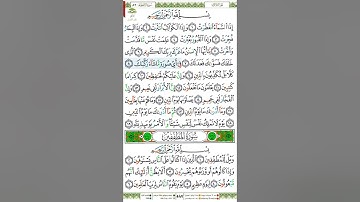 بِسْمِ ٱللَّهِ ٱلرَّحْمَٰنِ ٱلرَّحِيمِ
إِذَا ٱلسَّمَآءُ ٱنفَطَرَتْ ١ وَإِذَا ٱلْكَوَاكِبُ ٱنتَثَرَتْ ٢ وَإِذَا ٱلْبِحَارُ
فُجِّرَتْ ٣ وَإِذَا ٱلْقُبُورُ بُعْثِرَتْ ٤ عَلِمَتْ نَفْسٌ مَّا قَدَّمَتْ
وَأَخَّرَتْ ٥ يَٰٓأَيُّهَا ٱلْإِنسَٰنُ مَا غَرَّكَ بِرَبِّكَ ٱلْكَرِيمِ ٦ ٱلَّذِى
خَلَقَكَ فَسَوَّىٰكَ فَعَدَلَكَ ٧ فِىٓ أَىِّ صُورَةٍ مَّا شَآءَ رَكَّبَكَ ٨
كَلَّا بَلْ تُكَذِّبُونَ بِٱلدِّينِ ٩ وَإِنَّ عَلَيْكُمْ لَحَٰفِظِينَ ١٠ كِرَامًا
كَٰتِبِينَ ١١ يَعْلَمُونَ مَا تَفْعَلُونَ ١٢ إِنَّ ٱلْأَبْرَارَ لَفِى نَعِيمٍ ١٣
وَإِنَّ ٱلْفُجَّارَ لَفِى جَحِيمٍ ١٤ يَصْلَوْنَهَا يَوْمَ ٱلدِّينِ ١٥ وَمَا هُمْ عَنْهَا
بِغَآئِبِينَ ١٦ وَمَآ أَدْرَىٰكَ مَا يَوْمُ ٱلدِّينِ ١٧ ثُمَّ مَآ أَدْرَىٰكَ مَا يَوْمُ
ٱلدِّينِ ١٨ يَوْمَ لَا تَمْلِكُ نَفْسٌ لِّنَفْسٍ شَيْـًٔا وَٱلْأَمْرُ يَوْمَئِذٍ لِّلَّهِ ١٩
سُورَةُ المُطَفِّفِينَ
بِسْمِ ٱللَّهِ ٱلرَّحْمَٰنِ ٱلرَّحِيمِ
وَيْلٌ لِّلْمُطَفِّفِينَ ١ ٱلَّذِينَ إِذَا ٱكْتَالُوا۟ عَلَى ٱلنَّاسِ يَسْتَوْفُونَ ٢
وَإِذَا كَالُوهُمْ أَو وَّزَنُوهُمْ يُخْسِرُونَ ٣ أَلَا يَظُنُّ أُو۟لَٰٓئِكَ أَنَّهُم
مَّبْعُوثُونَ ٤ لِيَوْمٍ عَظِيمٍ ٥ يَوْمَ يَقُومُ ٱلنَّاسُ لِرَبِّ ٱلْعَٰلَمِينَ ٦